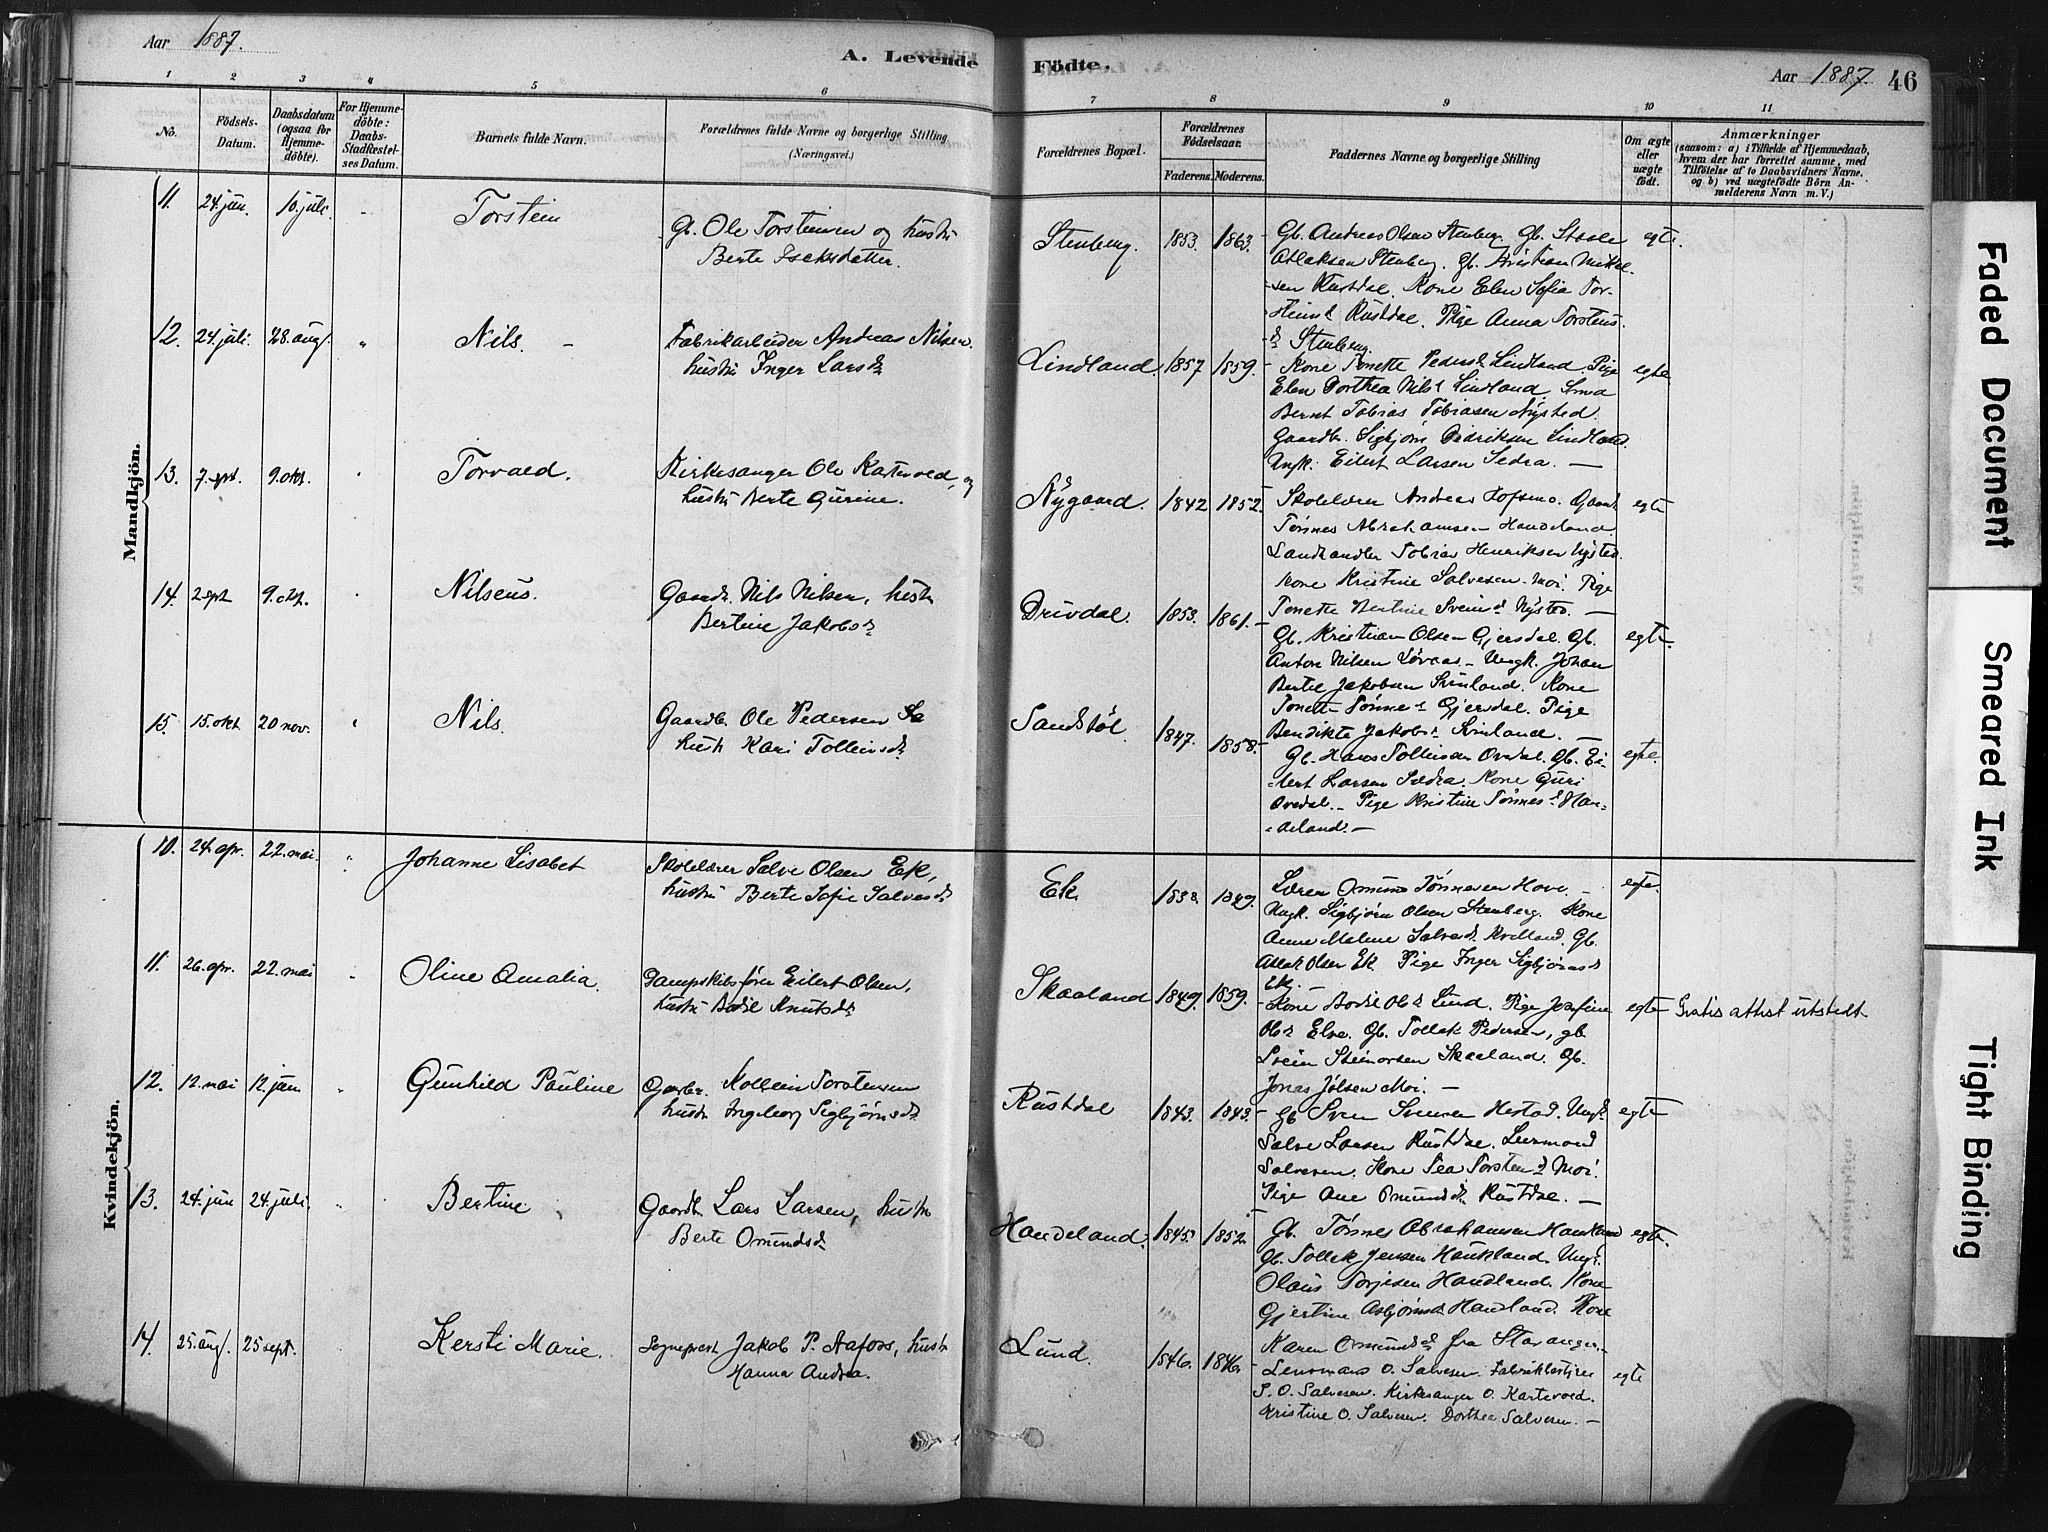 Aar 1887.
A. Levende Födte.
Aar 1887. 46
1 2 3 4 5 6 7 8 9 10 11
No.
Födsels-
Datum.
Daabsdatum
(ogsaa for
Hjemme-
döbte).
For Hjemme-
döbte:
Daabs-
Stadfæstel-
ses Datum.
Barnets fulde Navn.
Forældrenes fulde Navne og borgerlige Stilling
(Næringsvei.)
Forældrenes Bopæl.
Forældrenes
Födselsaar.
Faderens. Moderens.
Faddernes Navne og borgerlige Stilling
Om ægte
eller
uægte
födt.
Anmærkninger
(saasom: a) i Tilfælde af Hjemmedaab,
hvem der har forrettet samme, med
Tilföielse af to Daabsvidners Navne.
og b) ved uægtefödte Börn An-
melderens Navn m. V.)
Mandkjön.
11. 24. jun. 10. juli Torstein
Gb. Ole Torstensen og hustr
Berte Iseksdatter.
Stenberg. 1853. 1863.
Gb. Andreas Olsen Stenberg. Gb. Staale
Atlaksen Stenberg. Gb. Kristian Mikal-
sen Rustdal. Kone Elen Sofia Tor-
steinsd Rustdal. Pige Anna Torstens-
d Stenberg
egte.
12. 24. juli 28. aug. Nils.
Fabrikarbeider Andreas Nilsen.
hustr Inger Larsdr
Lindland. 1857 1859.
Kone Tonette Pedersd Lindland. Pige
Elen Dorthea Nilsd Lindland. Smed
Bernt Tobias Tobiasen Nysted.
Gaardbr. Sigbjørn Didriksen Lindland.
Ungk. Eilert Larsen Sedra.
egte
13. 7. spt. 9. okt. Torvald.
Kirkesanger Ole Kartevold, og
hustr Berte Gurine.
Nygaard. 1842 1852.
Skolelærer Andreas Hofsmo. Gaardbr
Tønnes Abrahamsen Handeland
Landhandler Tobias Henriksen Nysted.
Kone Kristine Salvesen Moi. Pige
Tonette Bertine Sveinsd Nysted
egte
14. 2 spt 9. okt. Nilseus.
Gaardb. Nils Nilsen, hustr
Bertine Jakobsdr
Drivdal. 1853. 1861.
Gb. Kristian Olsen Gjersdal. Gb.
Anton Nilsen Løvaas. Ungk. Johan
Bertel Jakobsen Svinland. Kone
Tonette Tønnesd Gjersdal. Pige
Bendikte Jakobsd Svinland.
egte.
15. 15. okt 20 nov. Nils.
Gaardb. Ole Pedersen
hustr Kari Tolleivsdr
Sandstøl. 1847. 1858.
Gb. Hans Tolleivsen Ovedal. Gb. Ei-
lert Larsen Sædra. Kone Guri
Ovedal. Pige Kristine Tønnesd Han-
deland.
egte.
Kvindekjön.
10. 24. apr. 22. mai. Johanne Lisabet
Skolelærer Salve Olsen Ek,
hustr Berte Sofie Salvesdr
Ek. 1849.
Lærer Omund Tønnesen Hove.
Ungk. Sigbjørn Olsen Stenberg. Kone
Anne Malene Salvesd. Kvelland. Gb.
Atlak Olsen Ek. Pige Inger Sigbjørnsd
Ek.
egte.
11. 26. apr. 22. mai Oline Amalia.
Dampskibsfører Eilert Olsen,
hustr Bodil Knutsdr
Skaaland 1849. 1859.
Kone Bodil Olsd Lund. Pige Josefine
Olsd Elve. Gb. Tollak Pedersen, gb
Svein Steinorsen Skaaland. Gb.
Jonas Jølsen Moi.
egte Gratis attest utstedt
12. 12. mai 12. jun Gunhild Pauline
Gaardbr. Kollein Torstensen
hustr Ingeborg Sigbjørnsdr
Rustdal 1843. 1843.
Gb Sven Svensen Hestad. Ungk
Salve Larsen Rustdal. Lensmand
Salvesen. Kone Tea Torstensd Moi.
Pige Ane Omundsdr Rustdal.
egte
13. 24. jun 24. juli. Bertine
Gaardb Lars Larsen, hustr
Berte Omundsdr
Handeland. 1845. 1852.
Gb. Tønnes Abrahamsen Haukland
Gb. Tollak Jensen Haukland. Ungk.
Olaus Torjesen Handland. Kone
Gjertine Asbjørnsd Handland. Kone
Karen Omundsd fra Stavanger.
egte.
14. 25. aug. 25 sept. Kersti Marie.
Sogneprest Jakob P. Aafoss, hustr
Hanna Andrea.
Lund. 1846. 1846.
Lensmand O. Salvesen. Fabrikbestyrer
S. O. Salvesen. Kirkesanger O. Kartevold.
Kristine O. Salvesen. Dorthea Salvesen.
egte
Faded Document
Smeared Ink
Tight Binding